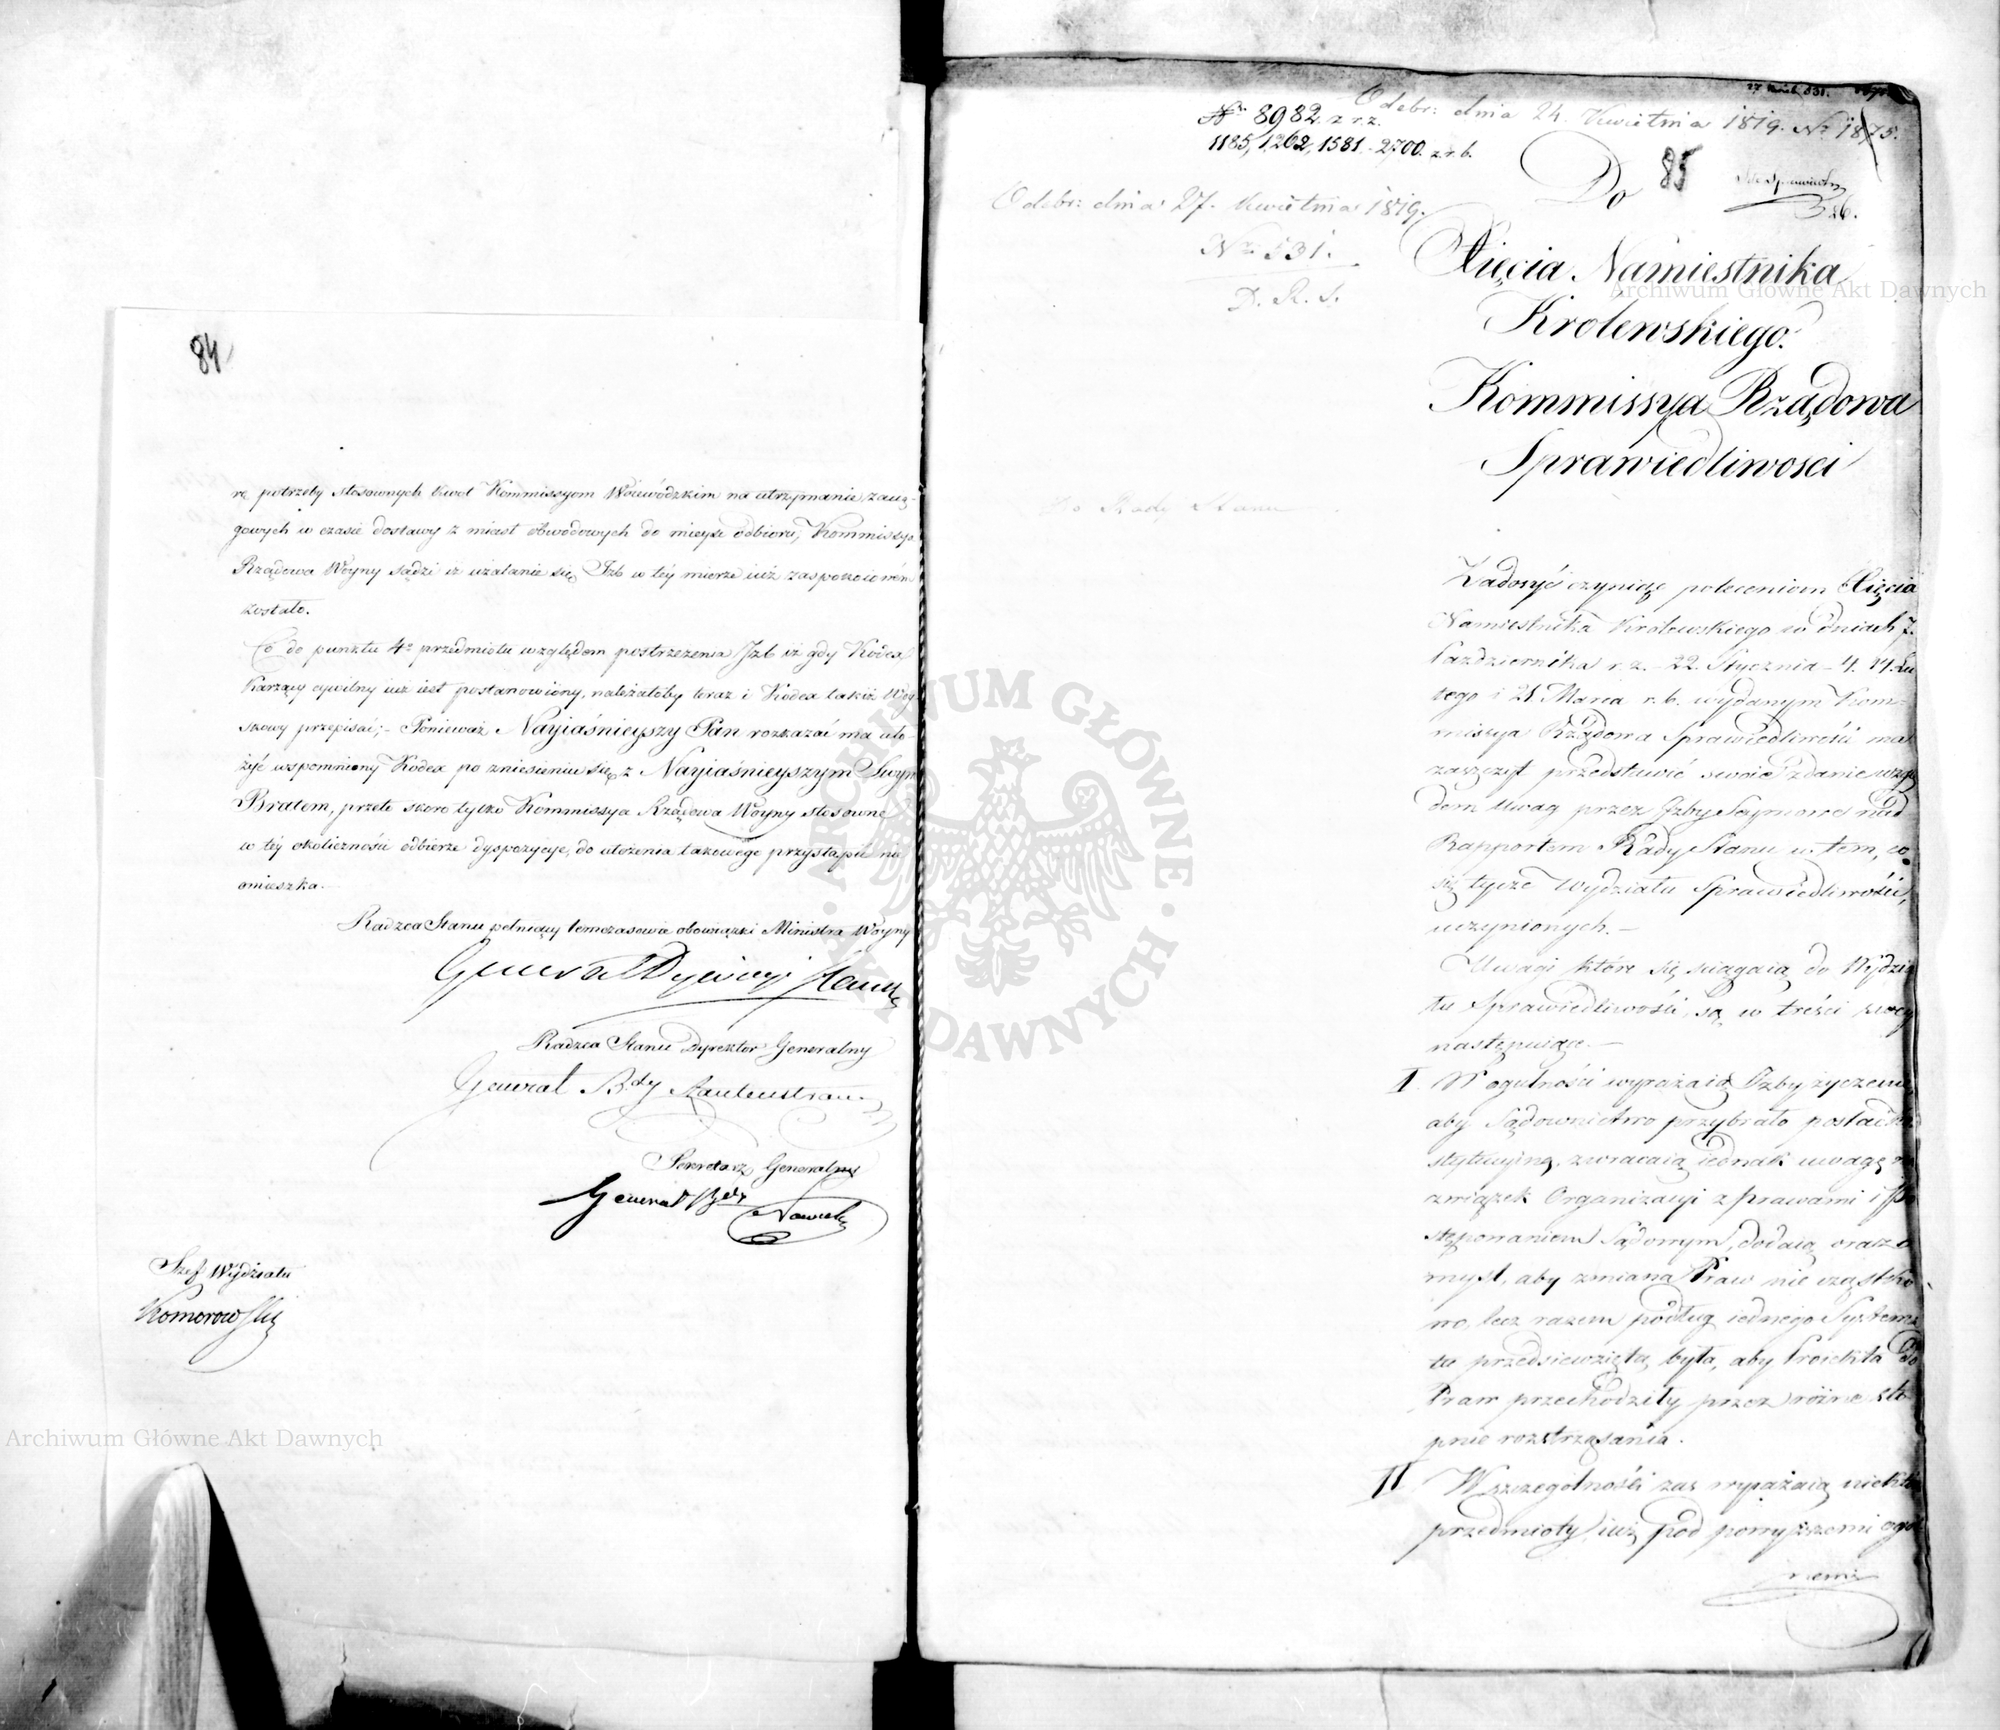 84
rę potrzeby stosownych kwot Kommissyom Woiewódzkim na utrzymanie zacią-
gowych w czasie dostawy z miast obwodowych do mieysc odbioru; Kommissya
Rządowa Woyny sądzi iż użalanie się Izb w téy mierze iuż zaspokoioném
zostało.
Co do punktu 4º przedmiotu względem postrzeżenia Izb iż gdy Kodex
Karzący cywilny iuż iest postanowiony, należałoby teraz i Kodex takiż Woy-
skowy przepisać; - Ponieważ Nayiaśnieyszy Pan rozkazać ma uło-
żyć wspomniony Kodex po zniesieniu się z Nayiaśnieyszym Swym
Bratem, przeto skoro tylko Kommissya Rządowa Woyny stosowne
w téy okoliczności odbierze dyspozycye, do ułożenia takowego przystąpić nie
omieszka.
Radzca Stanu pełniący tymczasowie obowiązki Ministra Woyny
Generał Dywizyi Hauke
Radzca Stanu Dyrektor Generalny
Generał Bdy
Sekretarz Generalny
Generał Bdy Nowicki
Szef Wydziału
Komorowski
27 Kwiet. 531.
Odebr: dnia 24. Kwietnia 1819. Nr 1875.
Nr 8982. z r. z.
1185, 1262, 1581. 2700. z r. b.
Do
85
Odebr: dnia 27. Kwietnia 1819.
Nr 531.
D. R. S.
Xięcia Namiestnika
Krolewskiego.
Kommissya Rządowa
Sprawiedliwosci
Do Rady Stanu
Zadosyć czyniąc poleceniom Xięcia
Namiestnika Krolewskiego w dniach 7.
Października r. z. - 22. Stycznia - 4. 14. Lu
tego i 21. Marca r. b. wydanym Kom-
missya Rządowa Sprawiedliwości ma
zaszczyt przedstawić swoie zdanie wzglę
dem Uwag przez Izby Seymowe nad
Rapportem Rady Stanu w tem, co
się tycze Wydziału Sprawiedliwości,
uczynionych. -
Uwagi które się sciągaią do Wydzia
łu Sprawiedliwości, są w treści swoiey
następuiące. -
I. W ogulności wyrażaią Izby życzenie,
aby Sądownictwo przybrało postać kon
stytucyiną, zwracaią iednak uwagę na
związek Organizacyi z prawami i Po
stępowaniem Sądowym, dodaią oraz
myśl, aby zmiana Praw nie cząstko
wo, lecz razem podług iednego Systema
tu przedsięwziętą była, aby Proiekta do
Praw przechodziły przez różne sto-
pnie roztrząsania.
II. W szczególności zas wyrażaią niektóre
przedmioty iuż pod powyższemi ogól
nemi
Archiwum Główne Akt Dawnych
Archiwum Główne Akt Dawnych
ARCHIWUM GŁÓWNE AKT DAWNYCH